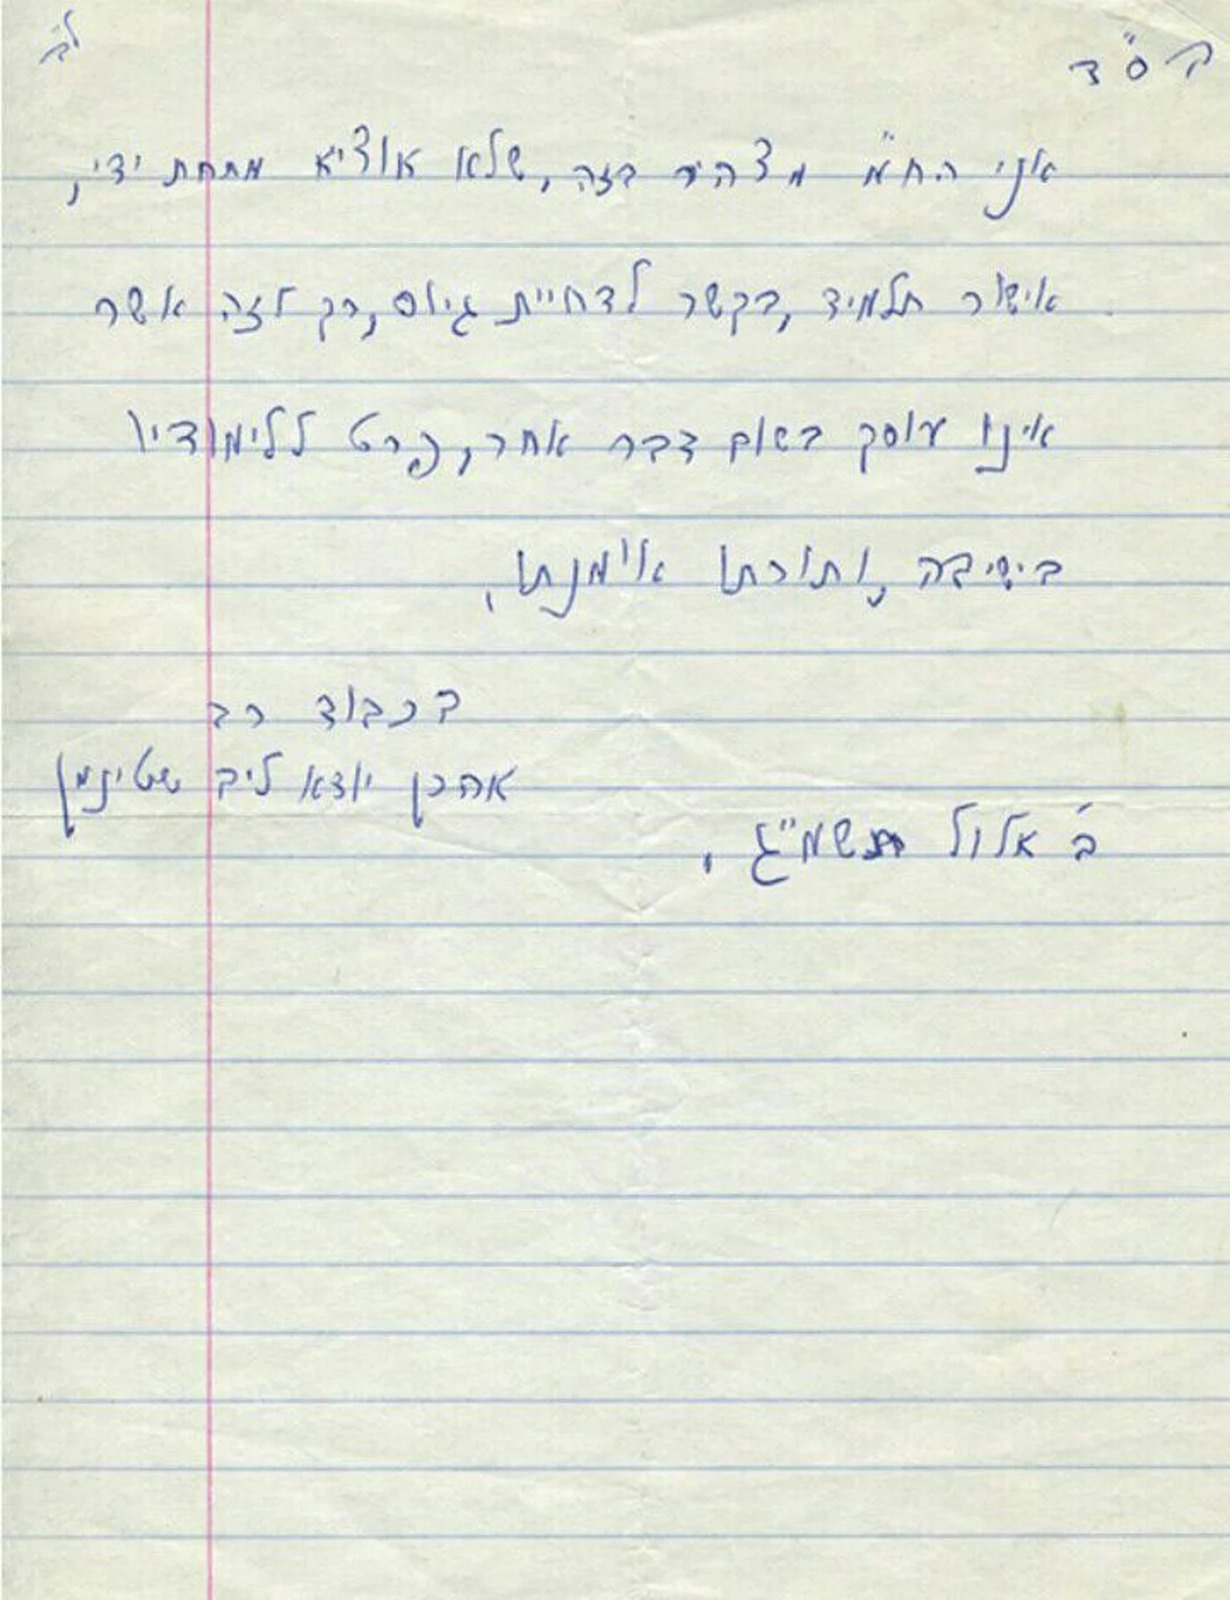 בס"ד
אני הח"מ מצהיר בזה, שלא אוציא מתחת ידי,
אישור תלמיד, בקשר לדחיית גיוס, רק לזה אשר
אינו עוסק בשום דבר אחר, פרט ללימודיו
בישיבה, ותורתו אומנתו,
בכבוד רב
אהרן יודא ליב שטינמן
ב' אלול תשמ"ג,